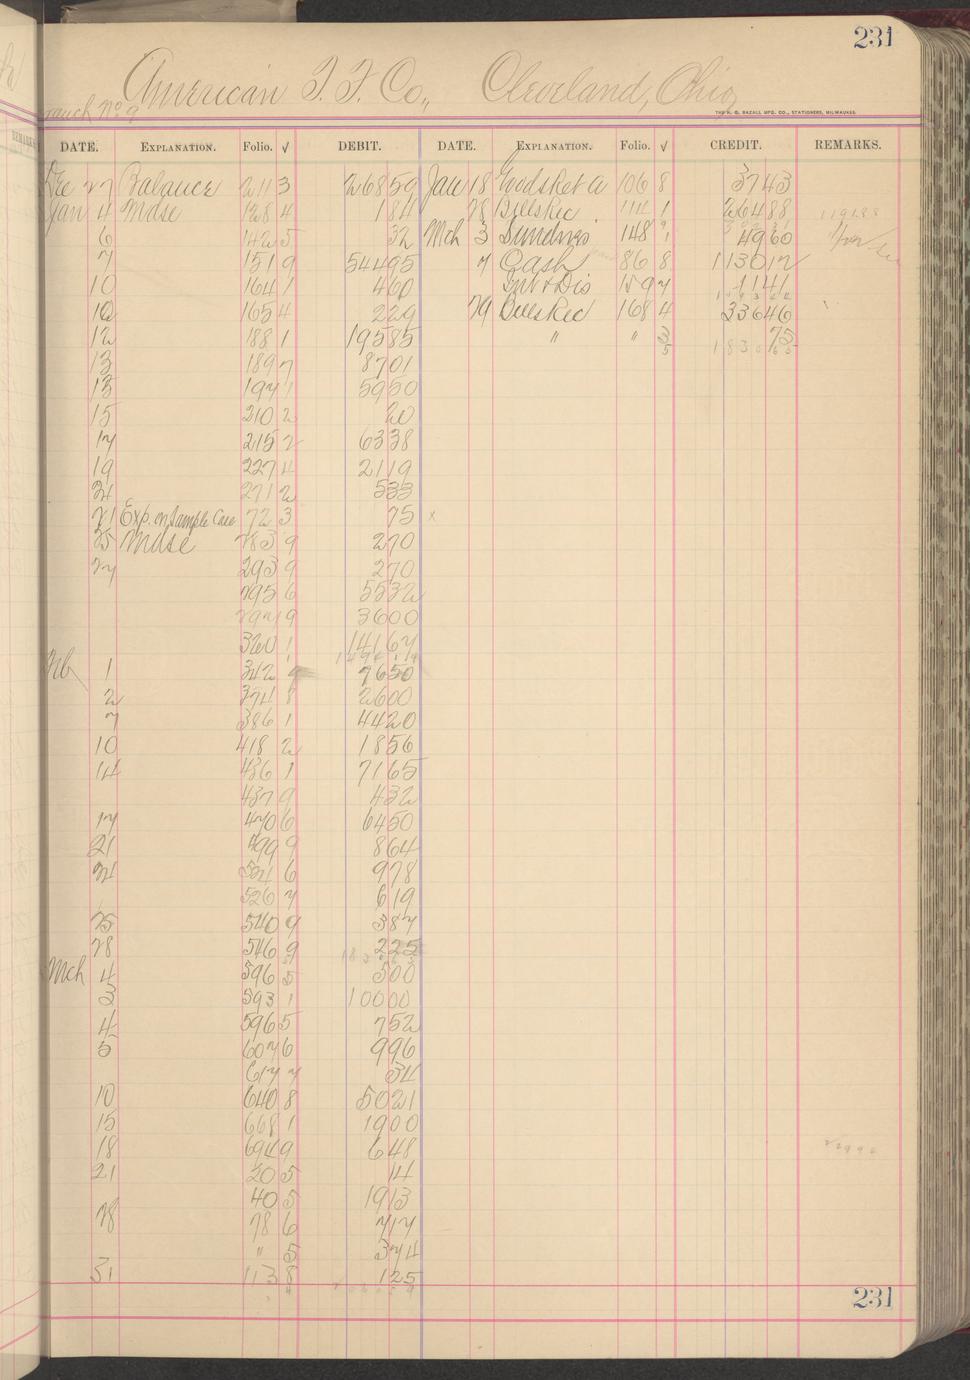 231
American F. F. Co., Cleveland, Ohio
Branch No 9
THE H. G. RAZALL MFG. CO., STATIONERS, MILWAUKEE.
DATE. EXPLANATION. Folio. √ DEBIT. DATE. EXPLANATION. Folio. √ CREDIT. REMARKS.
Dec 27 Balance 211 3 26859 Jan 18 Goodsket a 106 8 3743
Jan 4 Mdse 128 4 184 28 Billsrec 114 1 26488
6 142 5 32 Mch 3 Sundries 148 9/1 4960
7 151 9 54495 7 Cash 86 8 113012
10 164 1 460 Int & Dis 159 7 1141
10 165 4 229 29 Billsrec 168 4 33646
12 188 1 19585 " " 3 75
13 189 7 8701
13 197 1 5950
15 210 2 20
17 215 2 6338
19 227 4 2119
21 271 2 533
21 Exp. on Sample Case 72 3 75 x
25 Mdse 283 9 270
27 293 9 270
295 6 5532
297 9 3600
320 1 14167
Feb 1 342 9 7650
2 374 8 2600
7 386 1 4420
10 418 2 1856
14 436 1 7165
437 9 432
17 470 6 6450
21 499 9 864
24 524 6 978
526 7 619
25 540 9 387
28 546 9 225
Mch 4 596 5 500
3 593 1 10000
4 596 5 752
5 607 6 996
617 7 34
10 640 8 5021
15 668 1 1900
18 694 9 648
21 20 5 14
40 5 1913
28 78 6 717
" 5 374
31 113 8 125
231